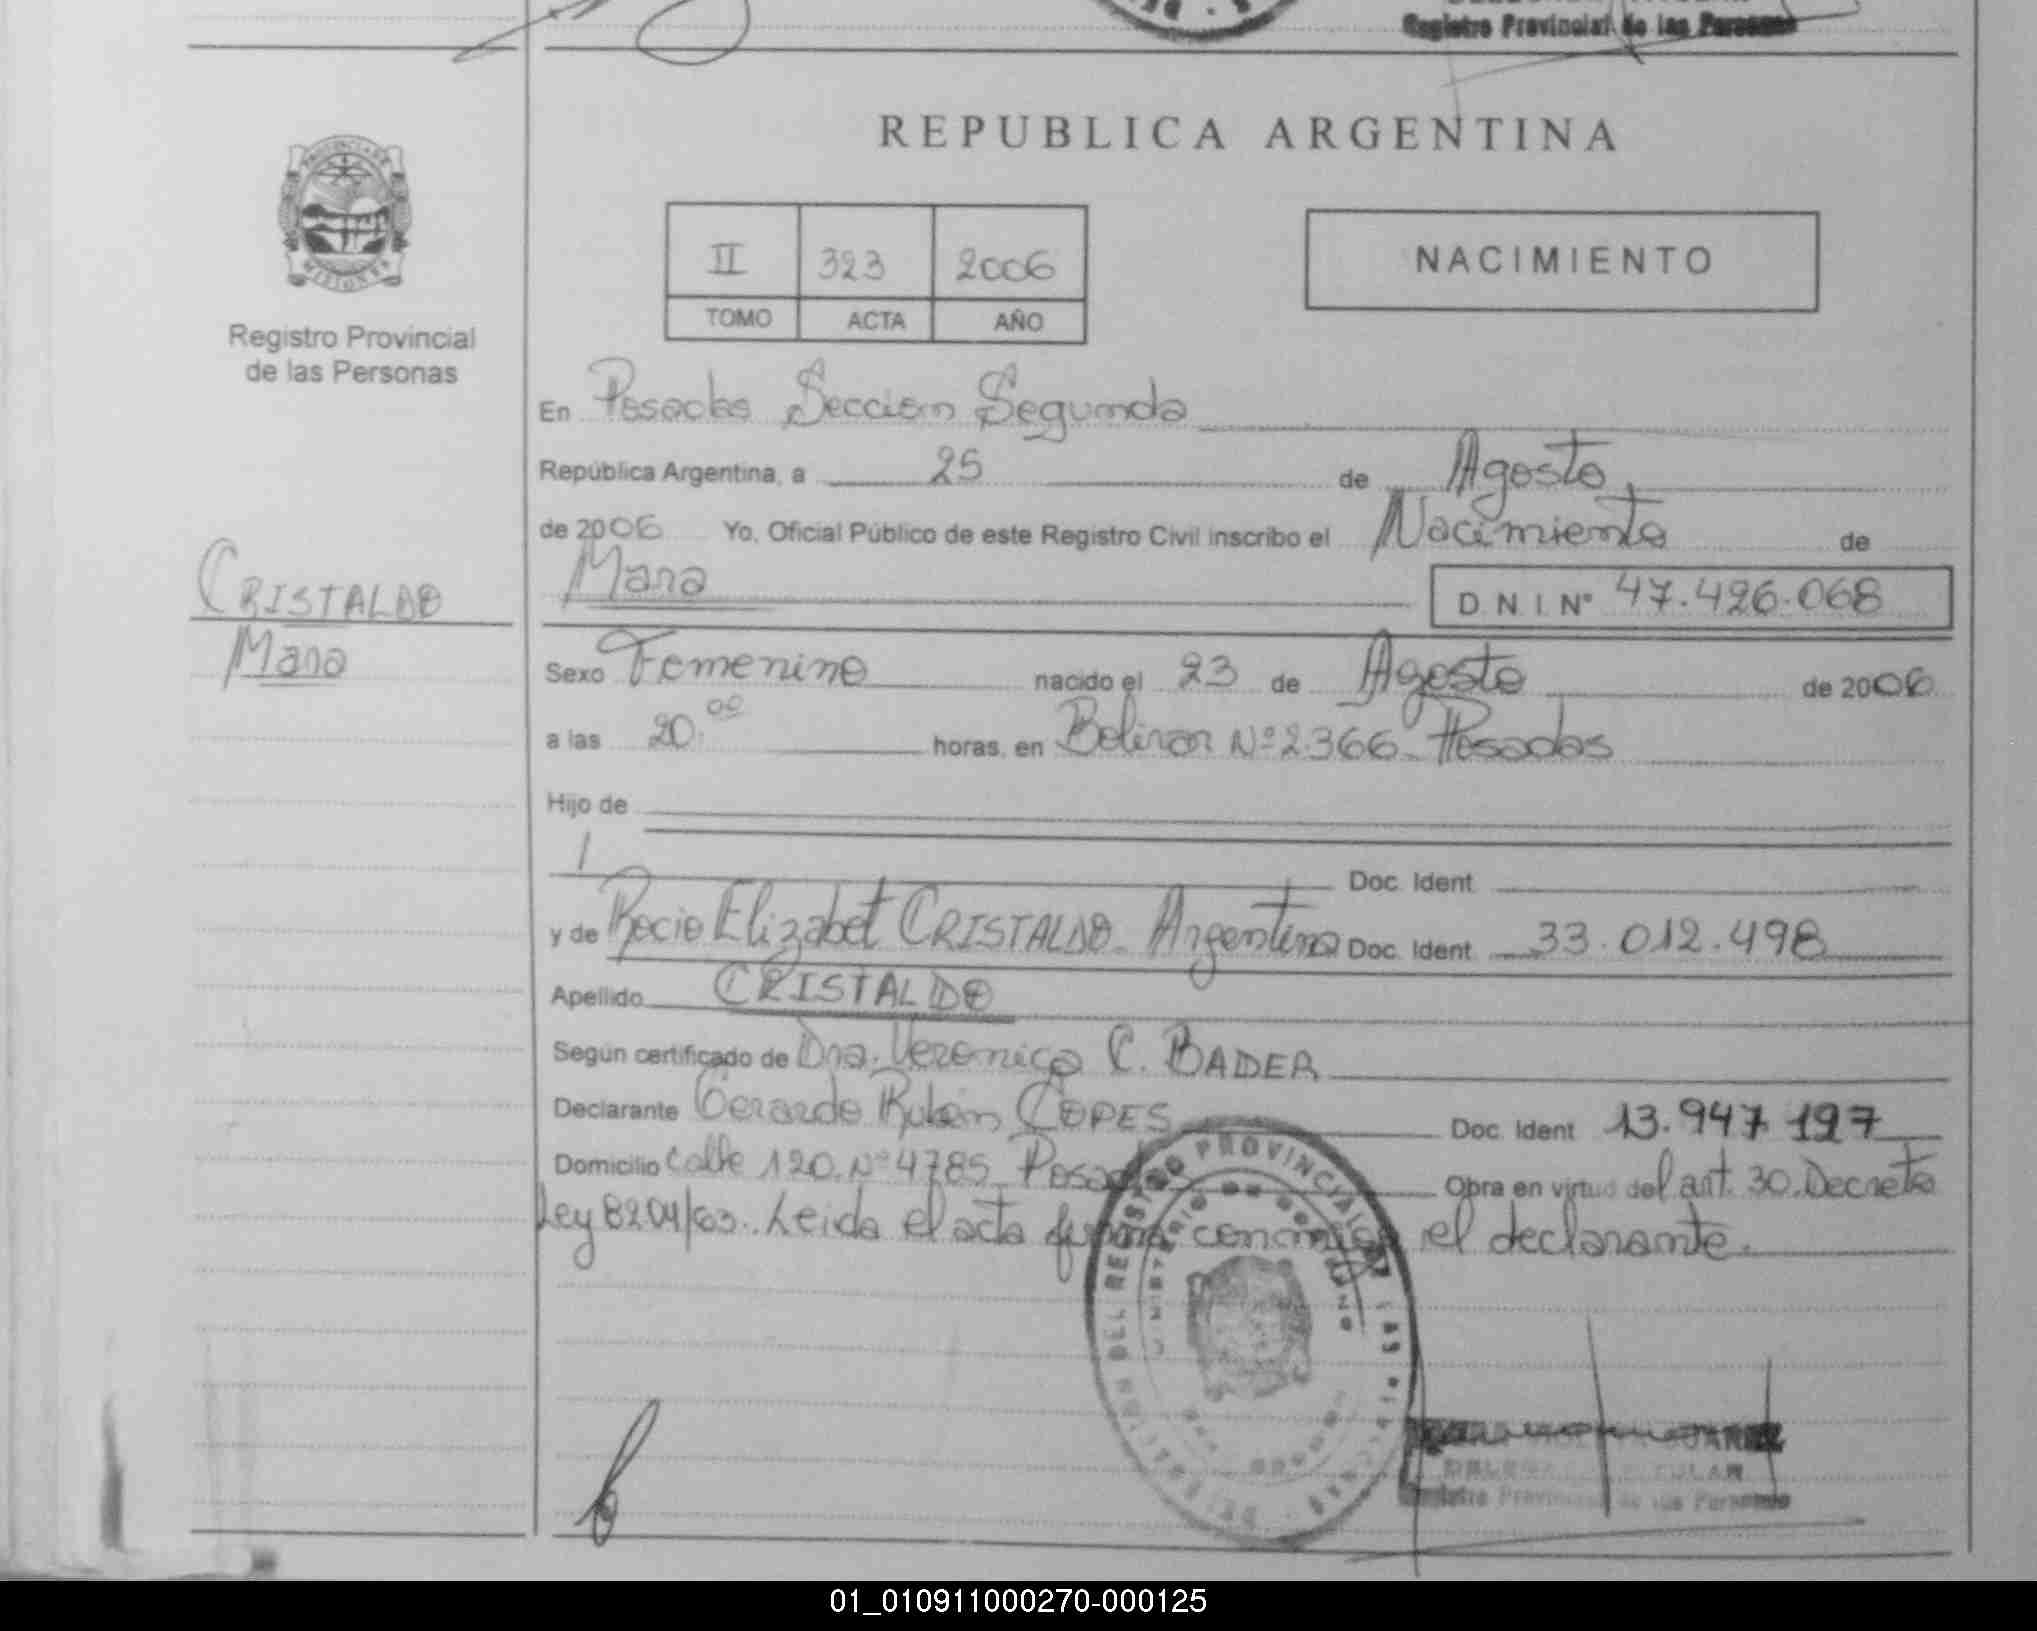 Registro Provincial de las Personas
REPUBLICA ARGENTINA
PROVINCIA DE
MISIONES
II 323 2006
TOMO ACTA AÑO
NACIMIENTO
Registro Provincial
de las Personas
En Posadas Sección Segunda
República Argentina, a 25 de Agosto
de 2006 Yo, Oficial Público de este Registro Civil inscribo el Nacimiento de
CRISTALDO
Mara
Mara
D.N.I. Nº 47.426.068
Sexo Femenino nacido el 23 de Agosto de 2006
a las 20:00 horas, en Bolivar Nº 2.366 Posadas
Hijo de
Doc. Ident.
y de Rocio Elizabet CRISTALDO. Argentina Doc. Ident. 33.012.498
Apellido CRISTALDO
Según certificado de Dra. Veronica C. BADER
Declarante Gerardo Rubén COPES Doc. Ident. 13.947.197
Domicilio Calle 120. Nº 4785 Posadas Obra en virtud del art. 30. Decreto
Ley 8204/63. Leida el acta firma conmigo el declarante.
DEL REGISTRO PROVINCIAL DE LAS PERSONAS
MINISTERIO DE GOBIERNO
SUAREZ
TITULAR
Registro Provincial de las Personas
01_010911000270-000125